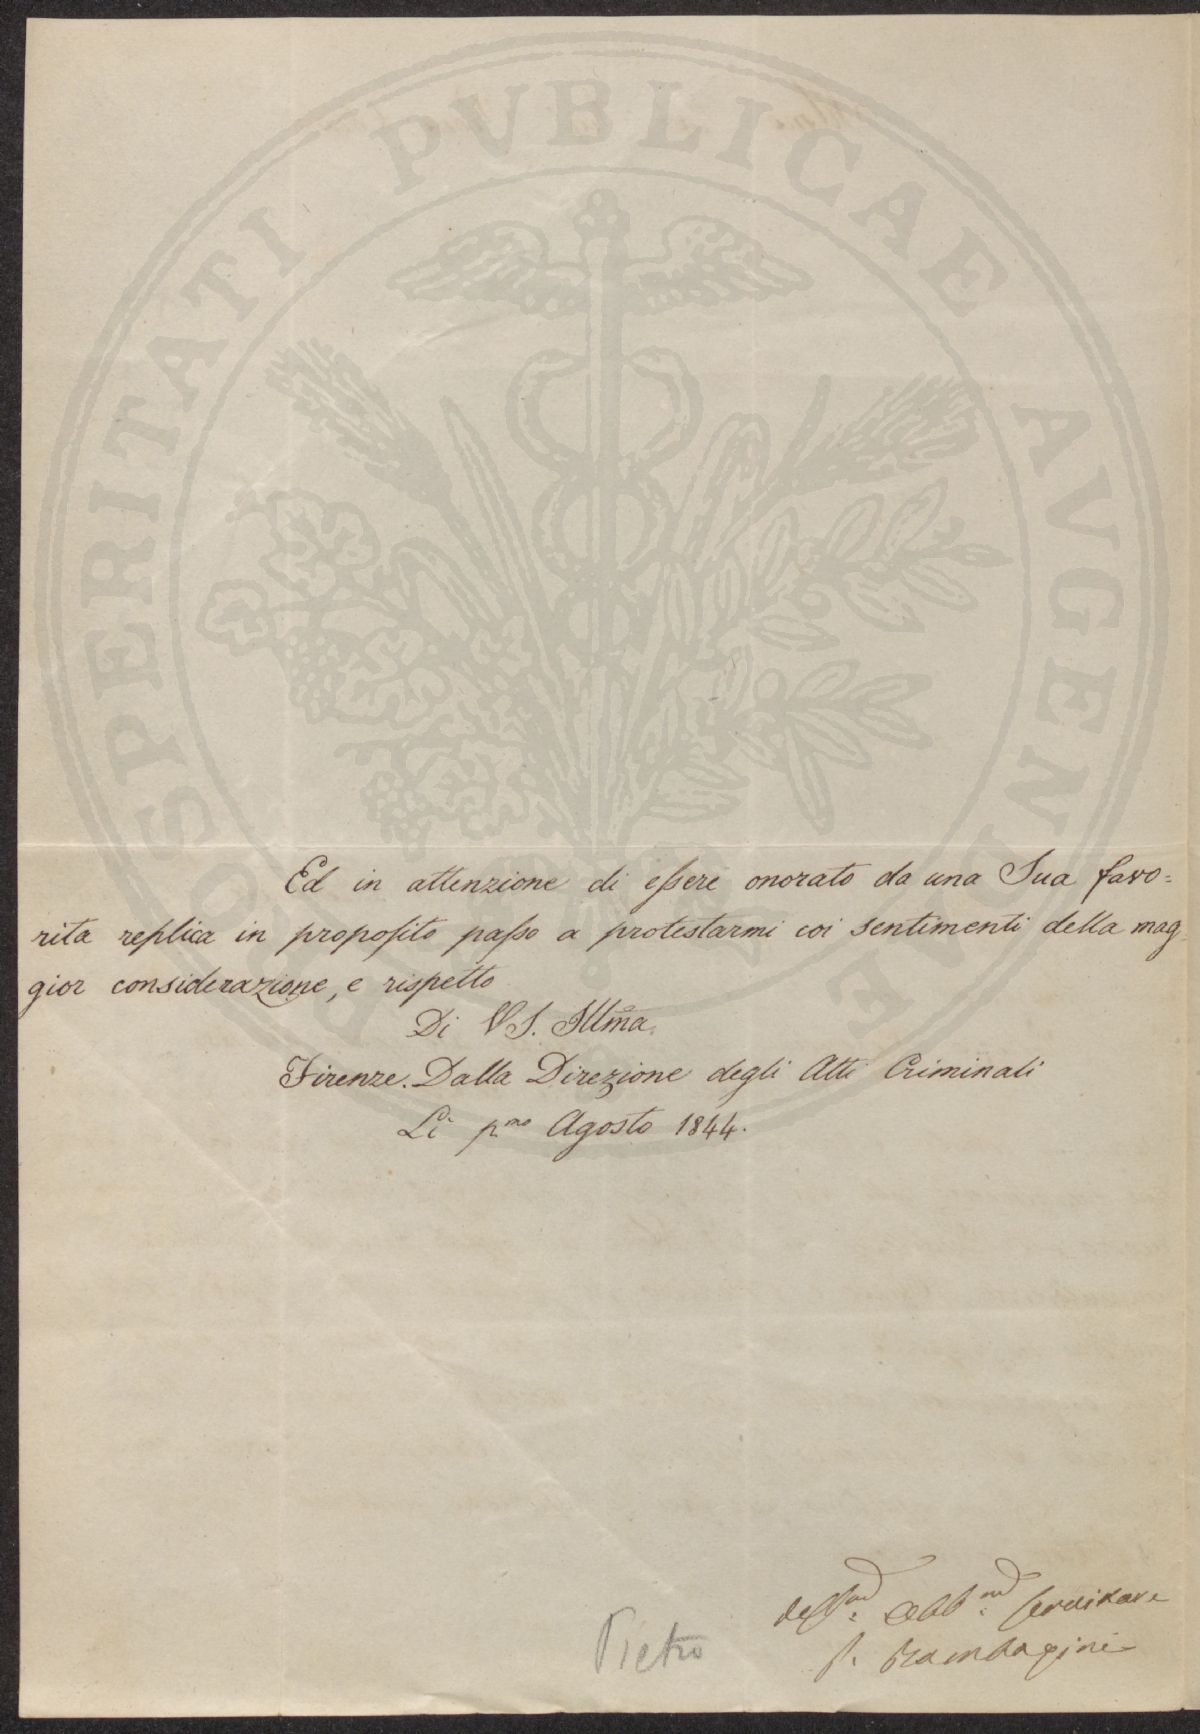 PROSPERITATI PVBLICAE AVGENDAE
Ed in attenzione di essere onorato da una Sua favo=
rita replica in proposito passo a protestarmi coi sentimenti della mag=
gior considerazione, e rispetto
Di VS. Illma.
Firenze. Dalla Direzione degli Atti Criminali
Li pmo Agosto 1844.
Servitore
P.
Pietro